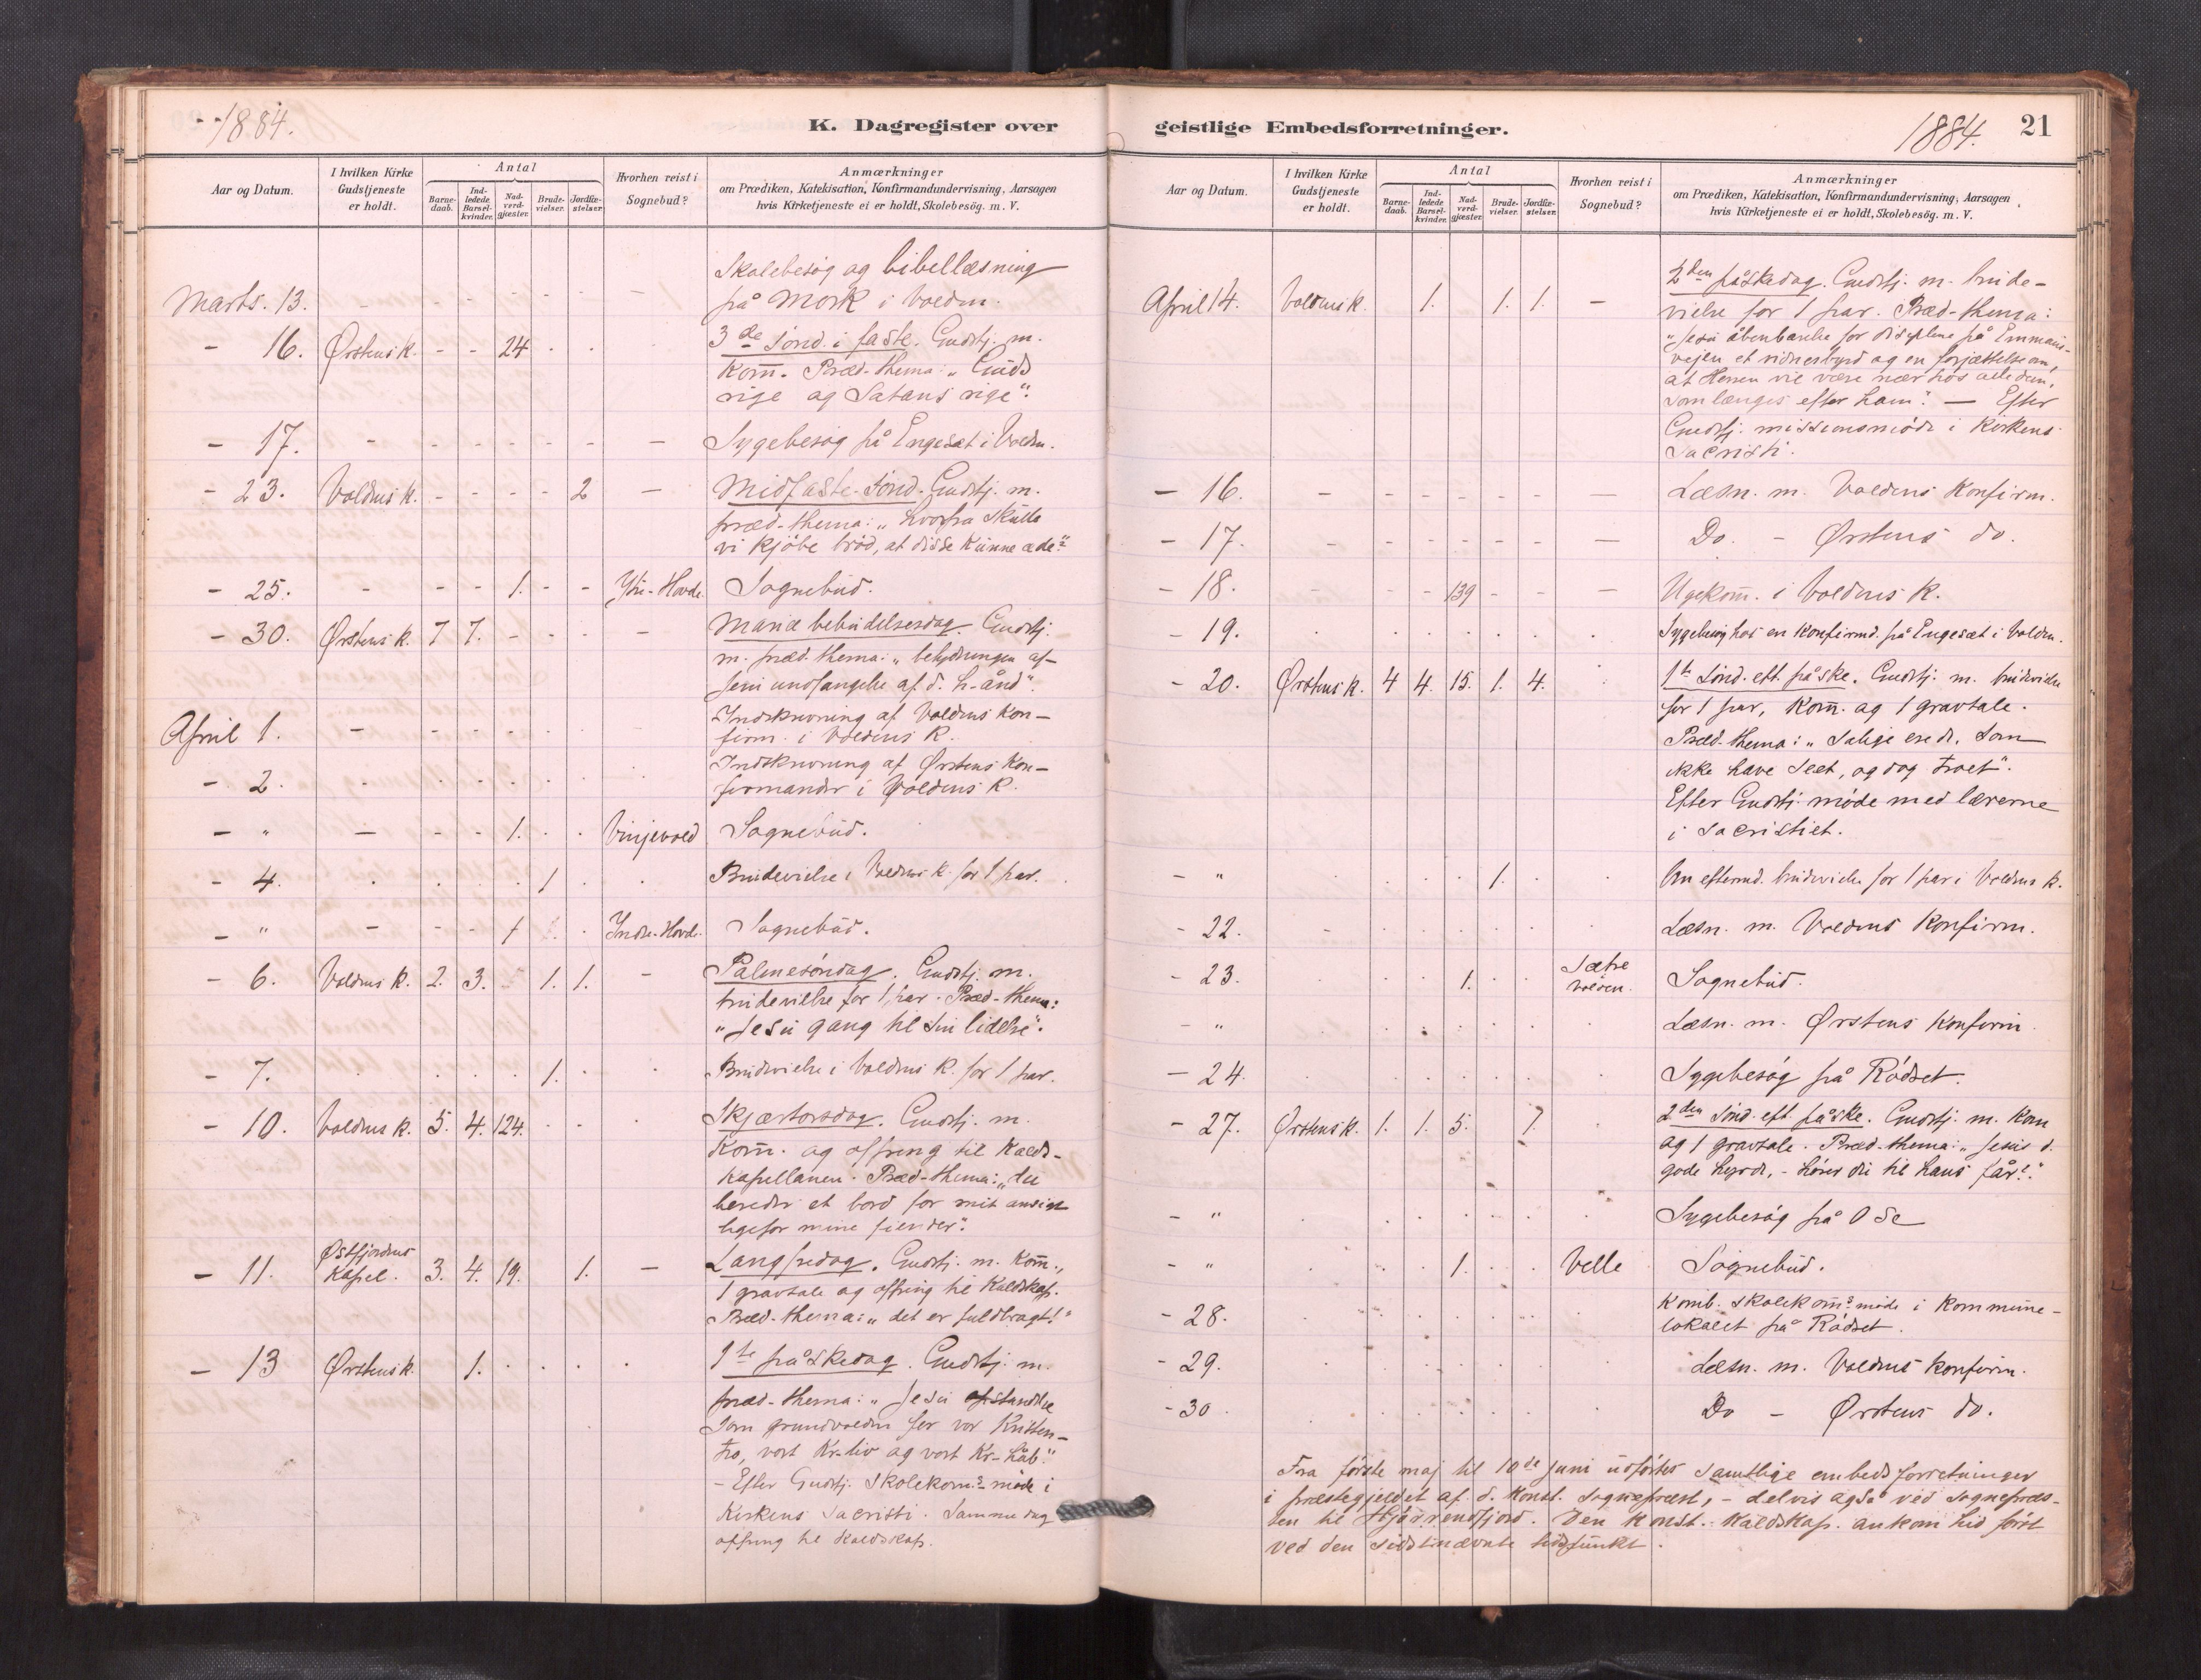 1884.
K. Dagregister over
Aar og Datum.
I hvilken Kirke Gudstjeneste er holdt.
Antal
Barne-daab.
Ind-ledede Barsel-kvinder.
Nad-verd-gjæster.
Brude-vielser.
Jordfæ-stelser.
Hvorhen reist i Sognebud?
Anmærkninger
om Prædiken, Katekisation, Konfirmandundervisning, Aarsagen
hvis Kirketjeneste ei er holdt, Skolebesög. m. V.
Skolebesög og bibellæsning
Marts. 13. - - - - - - - på Mork i Volden.
- 16. Ørstens k. - - 24 . . 3de sönd. i faste. Gudstj. m.
Kom̄. Præd-thema: „Guds
rige og Satans rige".
- 17. - - - - - - - Sygebesög på Engeset i Volden.
- 23. Voldens k. - - - - 2 - Midfaste-sönd. Gudstj. m.
præd-thema: „hvorfra skulle
vi kjöbe bröd, at disse kunne æde"
- 25. - - - 1. - - Ytre-Hovde. Sognebud.
- 30. Ørstens k. 7 7. - - - - Mariæ bebudelsesdag. Gudstj.
m. præd. thema: „betydningen af
Jesu undfangelse af d. h-ånd".
Indskrivning af Voldens kon-
April 1. - . . . . . firm. i Voldens k.
Indskrivning af Ørstens kon-
- 2. . . . . . . firmander i Voldens k.
- " - - - 1. . . Vinjevold Sognebud.
- 4. . . . . 1 . . Brudevielse i Voldens k. for 1 par.
- " - - - 1 . Indre-Hovde. Sognebud.
- 6. Voldens k. 2. 3. 1. 1. - Palmesöndag. Gudstj. m.
brudevielse for 1 par. Præd-thema:
„Jesu gang til sin lidelse".
- 7. . . . . 1. . . Brudvielse i Voldens k. for 1 par.
- 10. Voldens k. 5. 4. 124. - - . Skjærtorsdag. Gudstj. m.
Kom̄. og offring til Kalds-
kapellanen. Præd-thema: „du
bereder et bord for mit ansigt
ligefor mine fiender".
- 11. Østfjordens Kapel. 3. 4. 19. 1. - Langfredag. Gudstj. m. Kom̄.,
1 gravtale og offring til Kaldskap.
Præd-thema: „det er fuldbragt!"
- 13 Ørstens k. 1. . . . . 1te påskedag. Gudstj. m.
præd-thema: „Jesu opstandelse
som grundvolden for vor kristen-
tro, vort kr-liv og vort kr-håb".
- Efter Gudstj. skolekom̄s-möde i
kirkens sacristi. Samme dag
offring til Kaldskap.
geistlige Embedsforretninger.
1884. 21
Aar og Datum.
I hvilken Kirke Gudstjeneste er holdt.
Antal
Barne-daab.
Ind-ledede Barsel-kvinder.
Nad-verd-gjæster.
Brude-vielser.
Jordfæ-stelser.
Hvorhen reist i Sognebud?
Anmærkninger
om Prædiken, Katekisation, Konfirmandundervisning, Aarsagen
hvis Kirketjeneste ei er holdt, Skolebesög. m. V.
2den påskedag. Gudstj. m. brude-
April 14. Voldens k. 1. 1. 1. - vielse for 1 par. Præd-thema:
„Jesu åbenbarelse for disiplene på Emmaus-
vejen et vidnesbyrd og en forjættelse om,
at Herren vil være nær hos alle dem,
som længes efter ham". - Efter
Gudstj. missionsmöde i kirkens
sacristi.
- 16. - - - - - - - Læsn. m. Voldens konfirm.
- 17. - - - - - - - Do. - Ørstens do.
- 18. - - - 139 - - - Ugekom̄. i Voldens k.
- 19. . . . . . . . Sygebesög hos en konfirmd. på Engeset i Volden.
- 20. Ørstens k. 4 4. 15. 1. 4. . 1te Sönd. eft. påske. Gudstj. m. brudevielse
for 1 par, Kom̄. og 1 gravtale.
Præd-thema: „Salige ere de, som
ikke have seet, og dog troet".
Efter Gudstj. möde med lærerne
i sacristiet.
- " . . . . 1. . . Om eftermd. brudvielse for 1 par i Voldens k.
- 22. . . . . . . . Læsn. m. Voldens konfirm.
- 23. . . . 1. . . Sætre Volden. Sognebud.
- " . . . . . . . Læsn. m. Ørstens konfirm.
- 24. . . . . . . . Sygebesög på Rödset.
- 27. Ørstens k. 1. 1. 5. 1. . 2den Sönd. eft. påske. Gudstj. m. Kom
og 1 gravtale. Præd-thema: „Jesus d.
gode hyrde, - hörer du til hans får?"
- " . . . . . . . Sygebesög på Ose
- " . . . 1. . . Velle Sognebud.
- 28. . . . . . . . Komb. skolekom̄s möde i kommune-
lokalet på Rödset.
- 29. . . . . . . . Læsn. m. Voldens konfirm.
- 30. . . . . . . . Do - Ørstens do.
Fra förste maj til 10de juni udförtes samtlige embedsforretninger
i præstegjeldet af d. konst. sognepræst, - delvis også ved sognepræs-
ten til Hjörrendfjord. Den konst. kaldskap. ankom hid först
ved den sidstnævnte tidspunkt.